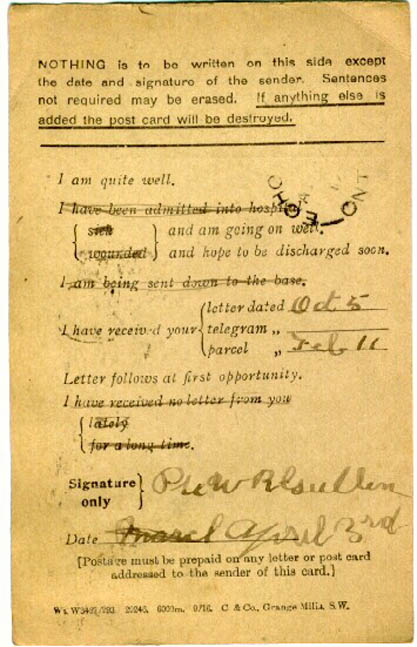 NOTHING is to be written on this side except
the date and signature of the sender. Sentences
not required may be erased. If anything else is
added the post card will be destroyed.
I am quite well.
I have been admitted into hospital
sick and am going on well.
wounded and hope to be discharged soon.
I am being sent down to the base.
letter dated Oct 5
I have received your telegram „
parcel „ Feb 11
Letter follows at first opportunity.
I have received no letter from you
lately
for a long time.
Signature
only
Pte W R
Date March April 3rd
[Postage must be prepaid on any letter or post card
addressed to the sender of this card.]
6000m. 9/16. C & Co., Grange Mills, S.W.